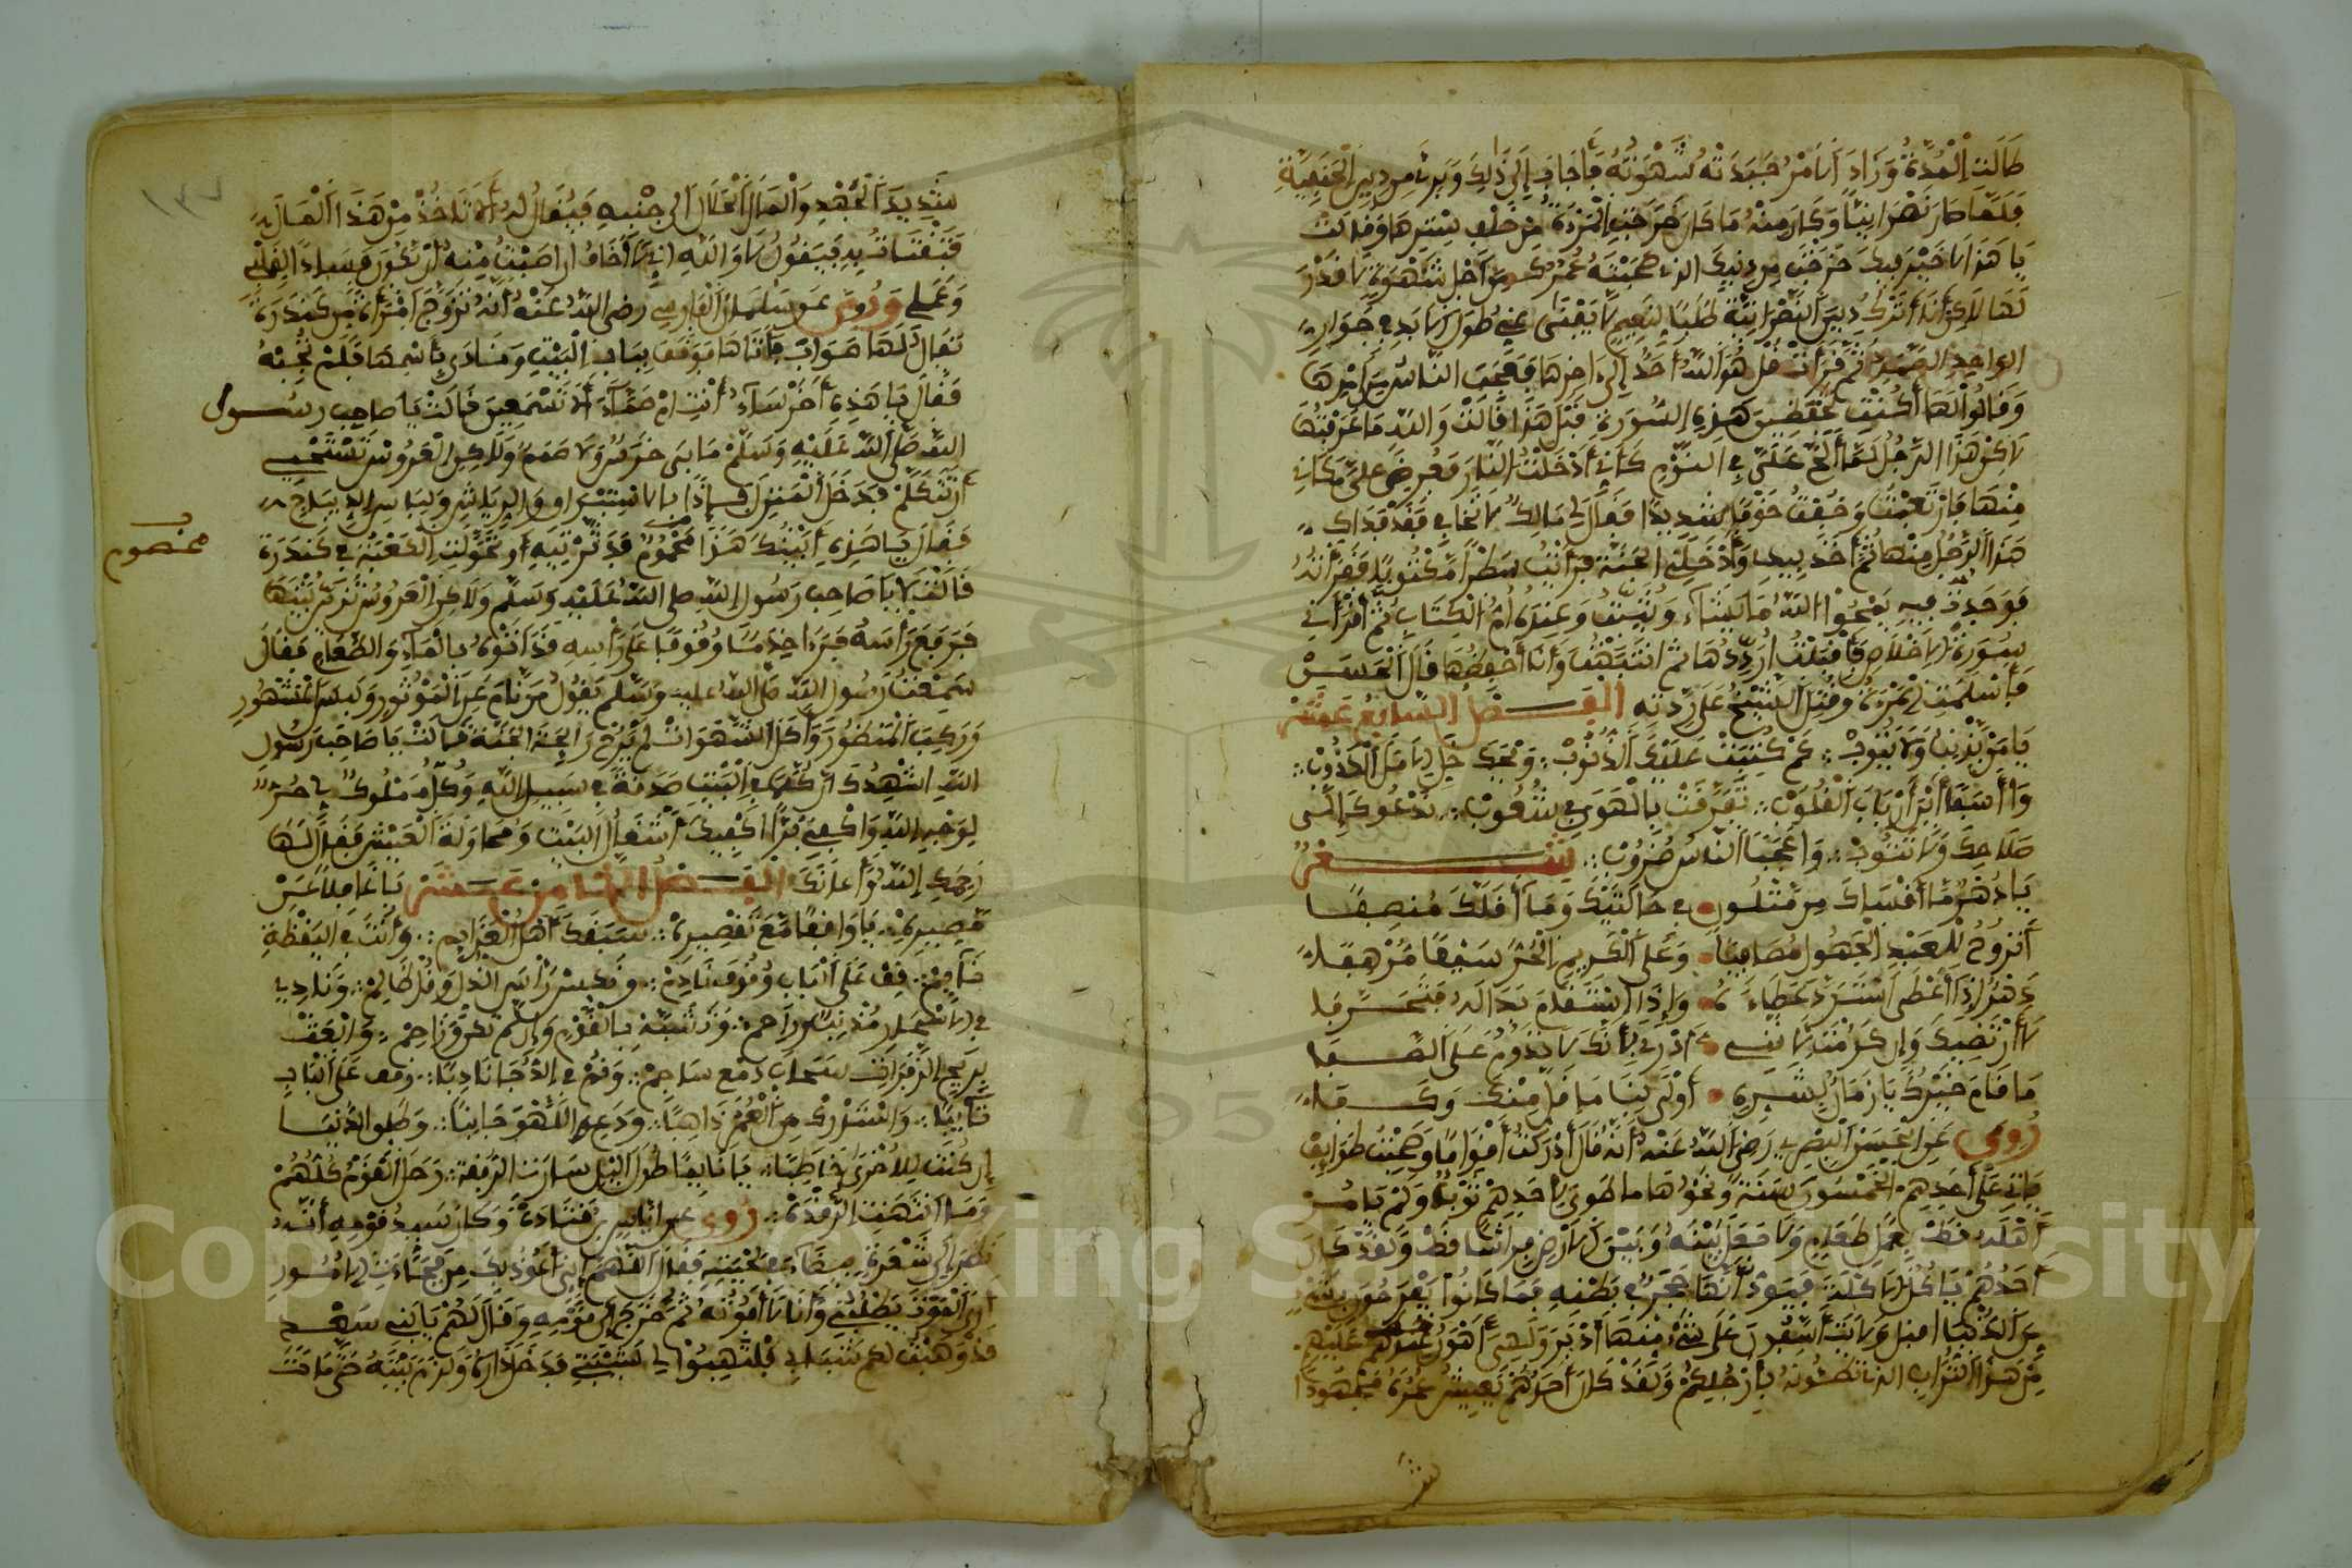 طَالَتِ الْمُدَّةُ وَزَادَ الامْرُ جَبَذَتْهُ شَهْوَتُهُ فَأَجَابَ إِلَى ذَلِكَ وَبَرِئَ مِن دِينِ الْحَنِيفِيَّةِ
فَلَمَّا صَارَ نَصْرَانِيّاً وَكَانَ مِنْهُ مَا كَانَ خَرَجَتِ الْمَرْأَةُ مِن خَلْفِ سِتْرِهَا وَقَالَتْ
يَا هَذَا لَا خَيْرَ فِيكَ خَرَجْتَ مِن دِينِكَ الذي صَحِبْتَهُ عُمُرَكَ مِنْ أَجْلِ شَهْوَةٍ لَا قَدْرَ
لَهَا لَاكِن أَنَا أَتْرُكُ دِينَ النَّصْرَانِيَّةِ طَلَبًا لِنَعِيمٍ لَا يَفْنَى عَنِّي طُولَ الْأَبَدِ فِي جِوَارِ
الوَاحِدِ الصَّمَدِ ثُمَّ قَرَأَتْ قُلْ هُوَ اللَّهُ أَحَدٌ إِلَى آخِرِهَا فَعَجِبَ النَّاسُ مِن أَمْرِهَا
وَقَالُوا لَهَا أَكُنْتِ تَحْفَظِينَ هَذِهِ السُّورَةَ قَبْلَ هَذَا قَالَتْ وَاللَّهِ مَا عَرَفْتُهَا
لَاكِنْ هَذَا الرَّجُلُ لَمَّا أَلَحَّ عَلَيَّ فِي النَّوْمِ كَأَنِّي أُدْخِلْتُ النَّارَ فَعُرِضَ عَلَيَّ مَكَانِي
مِنْهَا فَارْتَعَبْتُ وَخِفْتُ خَوْفًا شَدِيدًا فَقَالَ لِي مَالِكٌ لَا تَخَافِي فَقَدْ فَدَاكِ
هَذَا الرَّجُلُ مِنْهَا ثُمَّ أَخَذَ بِيَدِي وَأَدْخَلَنِي الْجَنَّةَ فَرَأَيْتُ سَطْراً مَكْتُوبًا فَقَرَأْتُهُ
فَوَجَدتُّ فِيهِ يَمْحُوا اللَّهُ مَا يَشَاءُ وَيُثْبِتُ وَعِنْدَهُ أُمُّ الْكِتَابِ ثُمَّ أَقْرَأَنِي
سُورَةَ الْإِخْلَاصِ فَأَقْبَلْتُ أُرَدِّدُهَا ثُمَّ انْتَبَهْتُ وَأَنَا أَحْفَظُهَا قَالَ الْحَسَنُ
فَأَسْلَمَتِ الْمَرْأَةُ وَقُتِلَ الشَّيْخُ عَلَى رِدَّتِهِ الْفَصْلُ السَّابِعُ عَشَرَ
يَا مَنْ يُذْنِبُ وَلَا يَتُوبُ كَمْ كُتِبَتْ عَلَيْكَ الذُّنُوبُ وَيْحَكَ خَلِّ الْأَمَلَ الْكَذُوبَ
وَا أَسَفَا أَيْنَ أَرْبَابُ الْقُلُوبِ تَفَرَّقَتْ بِالْهَوَى فِي شُعُوبْ نَدْعُوكَ إِلَى
صَلَاحِكَ وَلَا تَتُوبُ وَا عَجَبًا النَّاسُ ضُرُوبْ شِعْرٌ
يَا دَهْرُ مَا أَقْسَاكَ مِن مُتَلَوِّنٍ فِي حَالَتَيْكَ وَمَا أَقَلَّكَ مُنصِفًا
أَتَرُوحُ لِلْعَبْدِ الْجَهُولِ مُصَافِيًا وَعَلَى الْكَرِيمِ الْحُرِّ سَيْفًا مُرْهَفَا
دَهْرٌ إِذَا أَعْطَى اسْتَرَدَّ عَطَاءَهُ وَإِذَا اسْتَقَامَ بَدَا لَهُ فَتَحَرَّفَا
لَا أَرْتَضِيكَ وَإِن كَرُمْتَ لِأَنَّنِي أَدْرِي بِأَنَّكَ لَا تَدُومُ عَلَى الصَّفَا
مَا قَامَ خَيْرُكَ يَا زَمَانُ بِشَرِّهِ أَوْلَى بِنَا مَا قَلَّ مِنْكَ وَكَفَى
رُوِيَ عَنِ الْحَسَنِ الْبَصْرِي رَضِيَ اللَّهُ عَنْهُ أَنَّهُ قَالَ أَدْرَكْتُ أَقْوَامًا وَصَحِبْتُ طَوَائِفَ
يَأْتِي عَلَى أَحَدِهِمُ الْخَمْسُونَ سَنَةً وَنَحْوُهَا مَا طَوَى لِأَحَدِهِمْ ثَوْباً وَلَمْ يَأْمُرْ
أَهْلَهُ قَطُّ بِعَمَلِ طَعَامٍ وَلَا جَعَلَ بَيْنَهُ وَبَيْنَ الْأَرْضِ فِرَاشًا قَطُّ وَلَقَدْ كَانَ
أَحَدُهُمْ يَأْكُلُ الْأَكْلَةَ فَيَوَدُّ أَنَّهَا حَجَرٌ فِي بَطْنِهِ فَمَا كَانُوا يَفْرَحُونَ بِشَيْءٍ
مِنَ الدُّنْيَا أقبل وَلَا يَتَأَسَّفُونَ عَلَى شَيْءٍ مِنْهَا أَدْبَرَ وَلَهِيَ أَهْوَنُ عَلَيْهِمْ
مِّنْ هَذَا التُّرَابِ الذي تَطَئُونَهُ بِأَرْجُلِكُمْ وَلَقَدْ كَانَ أَحَدُهُمْ يَعِيشُ عُمُرَهُ مَجْهُودًا
شَدِيدَ الْجَهْدِ وَالْمَالُ الْحَلَالُ إِلَى جَنْبِهِ فَيُقَالُ لَهُ أَلَا تَأْخُذُ مِنْ هَذَا الْمَالِ
فَتَقْتَاتُ بِهِ فَيَقُولُ لَا وَاللَّهِ إِنِّي أَخَافُ إن أَصَبْتُ مِنْهُ أَنْ يَكُونَ فَسَاداً لِقَلْبِي
وَعَمَلِي وَرُوِيَ عَن سَلْمَانَ الْفَارِسِي رضي اللَّهُ عَنْهُ أَنَّهُ تَزَوَّجَ امْرَأَةً مِّن كِنْدَةَ
يُقَالُ لَهَا صَوَابُ فَأَتَاهَا فَوَقَفَ بِبَابِ الْبَيْتِ وَنَادَى بِاسْمِهَا فَلَمْ تُجِبْهُ
فَقَالَ يَا هَذِهِ أَخَرْسَاءُ أَنْتِ أَمْ صَمَّاءُ أَلَا تَسْمَعِينَ قَالَتْ يَا صَاحِبَ رَسُولِ
اللَّهِ صَلَّى اللَّهُ عَلَيْهِ وَسَلَّمْ مَا بِي خَرَسٌ وَلَا صَمَمٌ وَلَاكِنِ الْعَرُوسُ تَسْتَحْيِي
أَن تَتَكَلَّمَ فَدَخَلَ الْمَنْزِلَ
فَقَالَ يَا هَذِهِ أَبَيْتُكِ هَذَا مَحْمُومٌ فَدَثَّرْتِيهِ أَو تَحَوَّلَتِ الْكَعْبَةُ فِي كِنْدَةَ
محموم
قَالَتْ لَا يَا صَاحِبَ رَسُولِ اللَّهِ صلى اللَّهُ عَلَيْهِ وَسَلَّمَ وَلَاكِنِ الْعَرُوسُ تُزَيِّنُ بَيْتَهَا
فَرَفَعَ رَأْسَهُ فَرَءَا خَدَمًا وُقُوفًا عَلَى رَأْسِهِ قَدْ أَتَوْهُ بِالْمَاءِ وَالطَّعَامِ فَقَالَ
سَمِعْتُ رَسُولَ اللَّهِ صَلَّى اللَّهُ عليه وَسَلَّم يَقُولُ مَن نَّامَ عَلَى الْمَوْثُورِ وَلَبِسَ الْمَشْهُورَ
وَرَكِبَ الْمَنْظُورَ وَأَكَلَ الشَّهَوَاتِ لَمْ يَرَحْ رَائِحَةَ الْجَنَّةِ قَالَتْ يَا صَاحِبَ رَسُولِ
اللَّهِ أُشْهِدُكَ أَنَّ كُلَّمَا فِي الْبَيْتِ صَدَقَةٌ فِي سَبِيلِ اللَّهِ وَكُلُّ مَمْلُوكٍ لِي حُرٌّ
لِوَجْهِ اللَّهِ وَاكْفِنِي بُرّاً أَكْفِيكَ أَشْغَالَ الْبَيْتِ وَمُحَاوَلَةَ الْعَيْشِ فَقَالَ لَهَا
رَحِمَكِ اللَّهُ وَأَعَانَكِ الْفَصْلُ الثَّامِنُ عَشَرَ يَا غَافِلاً عَنْ
مَّصِيرِهِ يَا وَاقِفًا مَعَ تَقْصِيرِهْ سَبَقَكَ أَهْلُ الْعَزَائِمِ وَأَنْتَ فِي الْيَقْظَةِ
نَائِمٌ قِفْ عَلَى الْبَابِ وُقُوفَ نَادِمْ وَنَكِّسْ رَأْسَ الذُّلِّ وَقُلْ ظَالِمْ وَنَادِ
فِي الْأَسْحَارِ مُذْنِبٌ وَرَاحِمْ وَتَشَبَّهْ بِالْقَوْمِ وَإِن لَّمْ تَكُنْ وَزَاحِمْ وَابْعَثْ
بِرِيحِ الزَّفَرَاتِ سَحَابَ دَمْعٍ سَاجِمْ وَقُمْ فِي الدُّجَا نَادِبًا وَقِف عَلَى الْبَابِ
تَائِبًا وَاسْتَدْرِكْ مِنَ الْعُمُرِ ذَاهِبًا وَدَعِ اللَّهْوَ جَانِبًا وَطَلِّقِ الدُّنْيَا
إِن كُنْتَ لِلْأُخْرَى خَاطِبًا يَا نَائِمًا طُولَ اللَّيْلِ سَارَتِ الرُّفْقَةْ رَحَلَ الْقَوْمُ كُلُّهُمْ
وَمَا انْتَبَهْتَ مِنَ الرَّقْدَهْ رُوِيَ عن إِيَاسِ بْنِ قَتَادَةَ وَكَانَ سَيِّدَ قَوْمِهِ أَنَّهُ
نَظَرَ إِلَى شَعْرَةٍ بَيْضَاءَ فِي لِحْيَتِهِ فَقَالَ اللَّهُمَّ إِنِّي أَعُوذُ بِكَ مِن فُجَاءَاتِ الْأُمُورِ
أَرَى الْمَوْتَ يَطْلُبُنِي وَأَنَا لَا أَفُوتُهُ ثُمَّ خَرَجَ إِلَى قَوْمِهِ وَقَالَ لَهُمْ يَا بَنِي سَعْدٍ
قَدْ وَهَبْتُ لَكُمْ شَبَابِي فَلْتَهَبُوا لِي شَيْبَتِي فَدَخَلَ دَارَهُ وَلَزِمَ بَيْتَهُ حَتَّى مَاتَ
Copyright © King Saud University
195